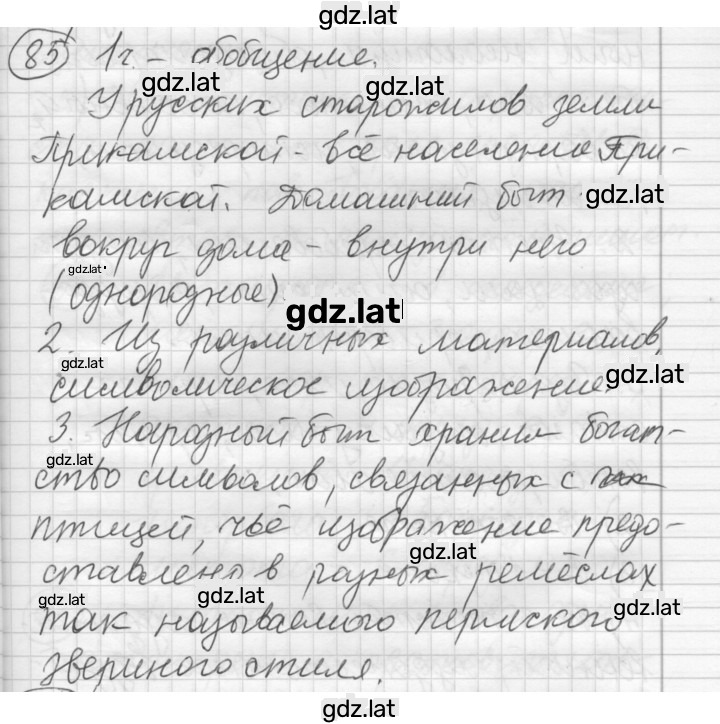 gdz.lat
85 1г. - обобщение.
gdz.lat gdz.lat
У русских старожилов земли
Прикамской - всё население При-
камской. Домашний быт gdz.lat
вокруг дома - внутри него
gdz.lat
(однородные).
gdz.lat
2. Из различных материалов,
gdz.lat gdz.lat
символическое изображение.
3. Народный быт хранил богат-
gdz.lat
ство символов, связанных с
птицей, чьё изображение предо-
gdz.lat
ставлено в разных ремёслах
gdz.lat gdz.lat gdz.lat
так называемого пермского
звериного стиля.
gdz.lat